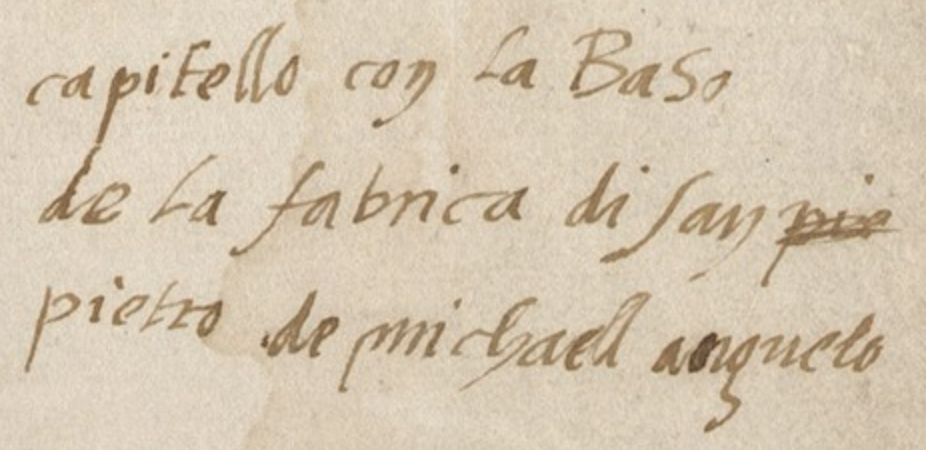 capitello con la Baso
de la fabrica di san pie
pietro de michaell anguelo